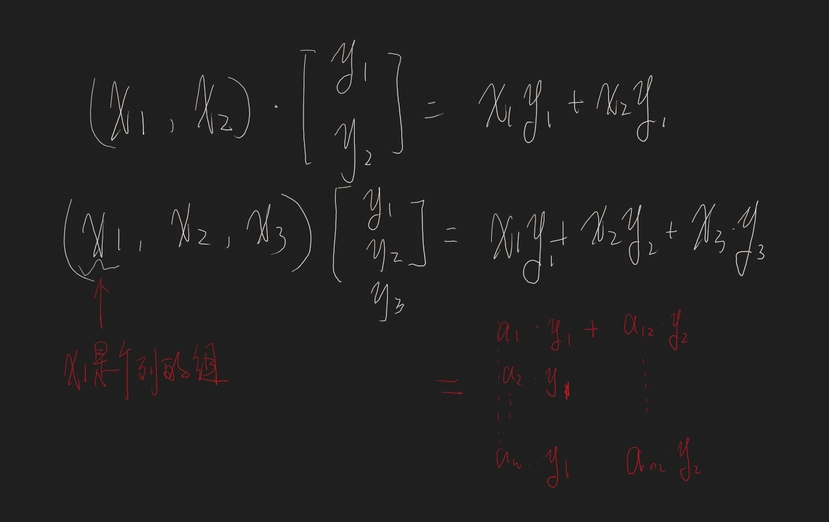 (x₁, x₂) · [y₁ y₂] = x₁y₁ + x₂y₁
(x₁, x₂, x₃) [y₁ y₂ y₃] = x₁y₁ + x₂y₂ + x₃·y₃
x₁是个列的组
= a₁·y₁ + a₁₂·y₂
a₂·y₁
aₙ·y₁ aₙ₂ y₂